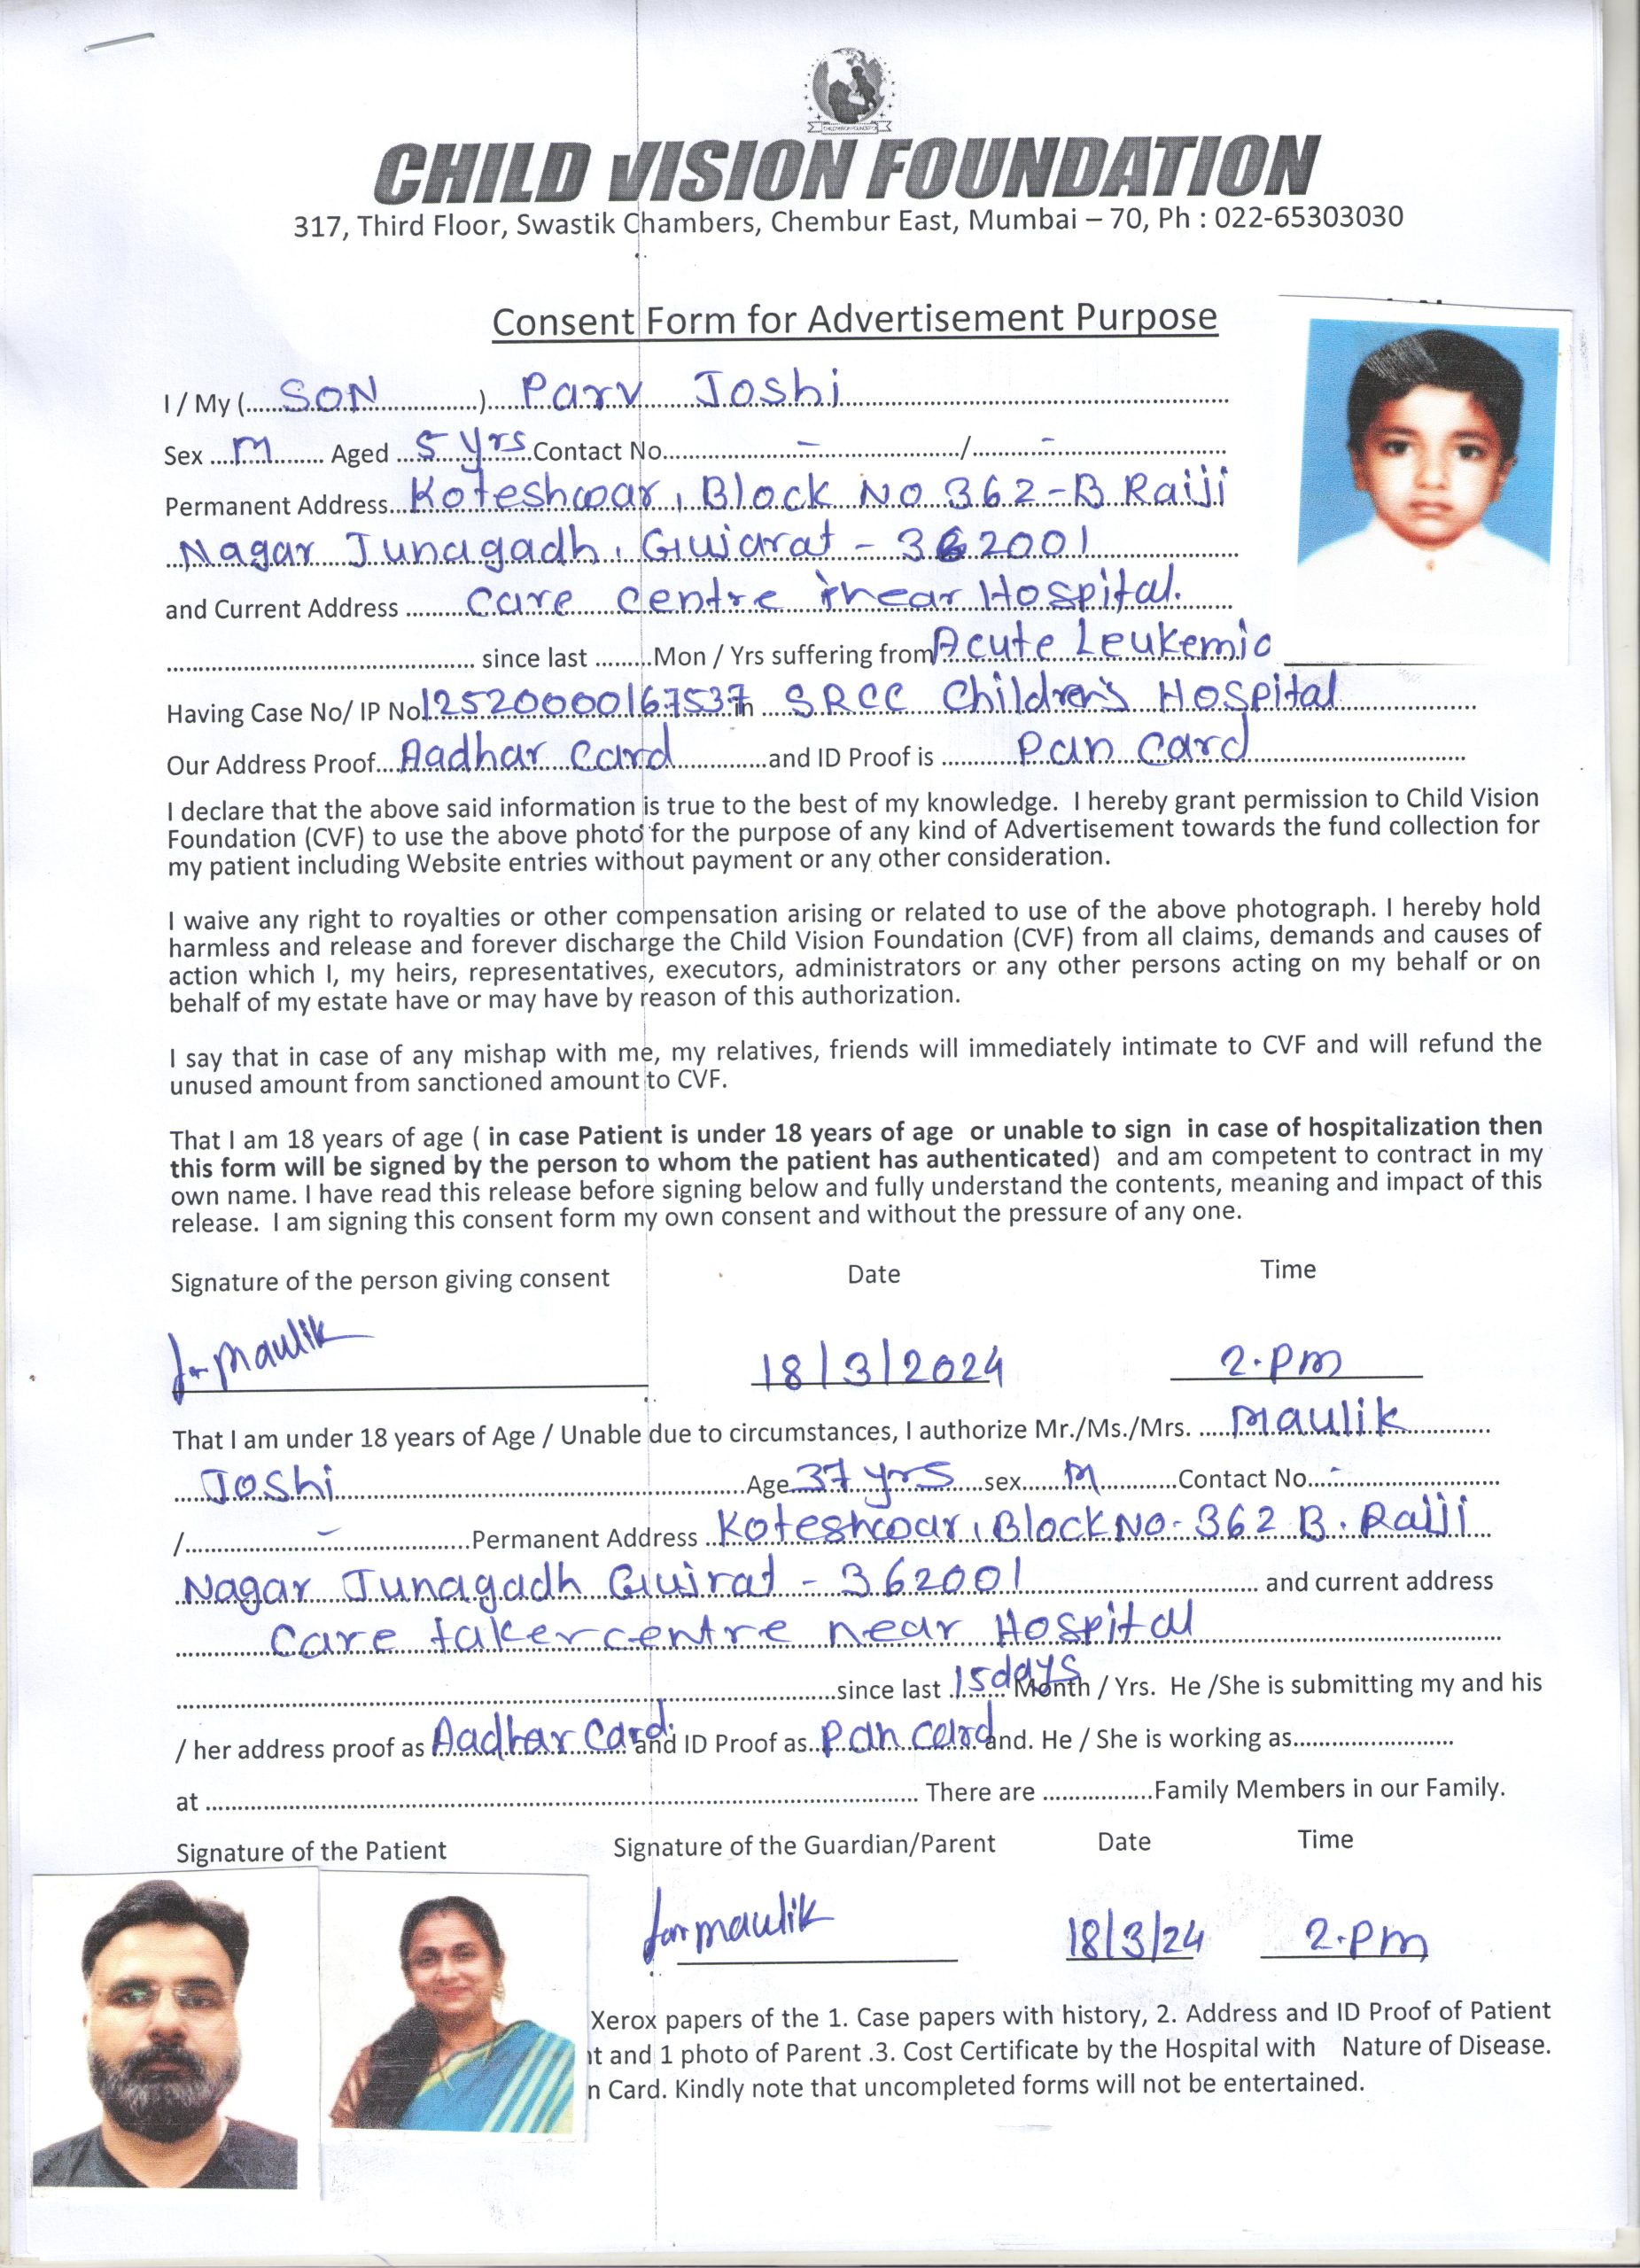 CHILD VISION FOUNDATION
317, Third Floor, Swastik Chambers, Chembur East, Mumbai – 70, Ph : 022-65303030
Consent Form for Advertisement Purpose
I / My (......SON..............).....Parv Joshi..........
Sex ....M........ Aged ...5 yrs.Contact No..............-................/...........-..............
Permanent Address...Koteshwar, Block No 362-B Raiji
Nagar Junagadh, Gujarat - 362001
and Current Address .......... Care Centre near Hospital.
............................................. since last .........Mon / Yrs suffering from Acute Leukemia
Having Case No/ IP No.12520000167537 in .... SRCC Children's Hospital
Our Address Proof....Aadhar Card..............and ID Proof is ........... Pan Card
I declare that the above said information is true to the best of my knowledge. I hereby grant permission to Child Vision
Foundation (CVF) to use the above photo for the purpose of any kind of Advertisement towards the fund collection for
my patient including Website entries without payment or any other consideration.
I waive any right to royalties or other compensation arising or related to use of the above photograph. I hereby hold
harmless and release and forever discharge the Child Vision Foundation (CVF) from all claims, demands and causes of
action which I, my heirs, representatives, executors, administrators or any other persons acting on my behalf or on
behalf of my estate have or may have by reason of this authorization.
I say that in case of any mishap with me, my relatives, friends will immediately intimate to CVF and will refund the
unused amount from sanctioned amount to CVF.
That I am 18 years of age ( in case Patient is under 18 years of age or unable to sign in case of hospitalization then
this form will be signed by the person to whom the patient has authenticated) and am competent to contract in my
own name. I have read this release before signing below and fully understand the contents, meaning and impact of this
release. I am signing this consent form my own consent and without the pressure of any one.
Signature of the person giving consent Date Time
Maulik 18/3/2024 2.PM
That I am under 18 years of Age / Unable due to circumstances, I authorize Mr./Ms./Mrs. .....Maulik
Joshi.......Age.37 yrs.....sex....M..........Contact No...-
/................-..................Permanent Address ..Koteshwar, Block No- 362 B. Raiji
Nagar Junagadh Gujrat - 362001 ............ and current address
Care taker centre near Hospital
...............since last .15 days Month / Yrs. He /She is submitting my and his
/ her address proof as Aadhar Card. and ID Proof as..Pan Card and. He / She is working as............
at ............................ There are ..................Family Members in our Family.
Signature of the Patient Signature of the Guardian/Parent Date Time
Maulik 18/3/24 2.PM
Xerox papers of the 1. Case papers with history, 2. Address and ID Proof of Patient
and 1 photo of Parent .3. Cost Certificate by the Hospital with Nature of Disease.
Card. Kindly note that uncompleted forms will not be entertained.